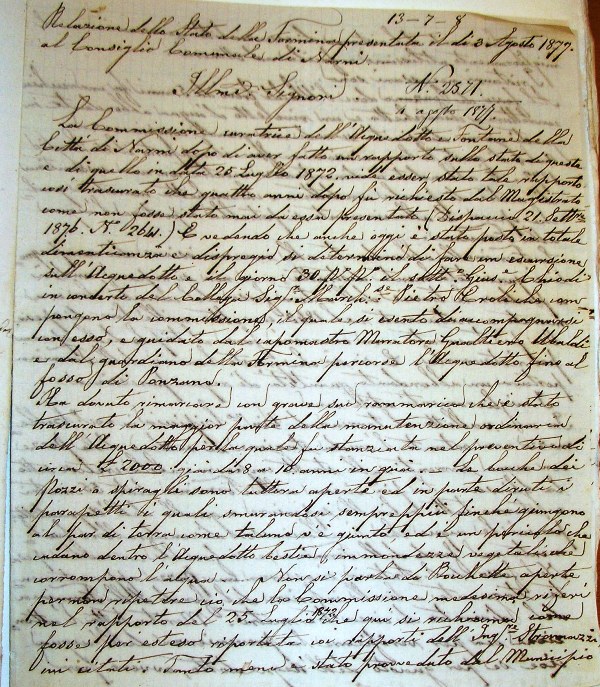 13 - 7 - 8
Relazione dello Stato della Formina presentata il dì 3 Agosto 1877.
al Consiglio Comunale di Narni.
Illmi Signori N. 2571.
1 agosto 1877.
La Commissione curatrice dell'Aquedotto e Fontane della
Città di Narni dopo di aver fatto un rapporto sullo stato di queste
e di quello in data 25 Luglio 1872, vide esser stato tale rapporto
così trascurato che quattro anni dopo fu richiesto dal Magistrato
come non fosse stato mai da essa presentato (Dispaccio 21 Settbre
1876. N. 2641.) E vedendo che anche oggi è stato posto in totale
dimenticanza e dispregio si determinò da fare un escursione
sull'Aquedotto e il giorno 30 il Giuse Chiodi
in concerto del Collega Sigr March. Pietro com
pongono la commissione, il quale si esentò di accompagnarsi
con esso, e guidato dal capomastro Muratore Gualtiero Ubaldi
e dal guardiano della Formina percorse l'Aquedotto fino al
fosso di Ponzano.
Ha dovuto rimarcare con grave suo rammarico che è stato
trascurato la maggior parte della manutenzione ordinaria
dell'Aquedotto per la quale fu stanziata nel preventivo di
circa £ 2000. già da 8 a 10 anni in qua. Le bocche dei
Pozzi o spiragli sono tuttora aperte ed in parte diruti i
parapetti i quali smurandosi sempreppiù finche giungono
al par di terra come taluno v'è giunto ed è un pericolo che
cadano dentro l'Aquedotto bestie, immondezze vegetali che
corrompono l'aqua. Non si parla di Bocchette aperte
per non ripetere ciò che la Commissione medesima riferì
nel rapporto del 25 Luglio 1872 che quì si richiama come
fosse per esteso riportata coi rapporti dell'Ingre Stramazzi
ivi citati. Tanto meno è stato proveduto dal Municipio